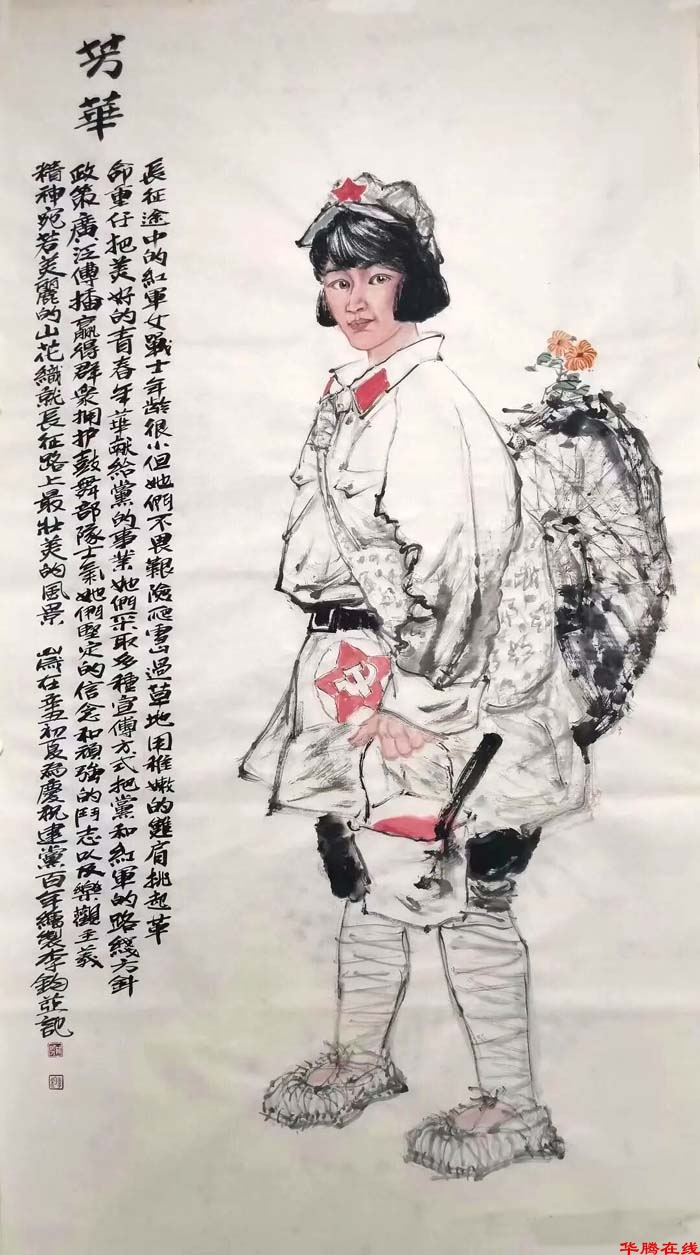 芳華
長征途中的紅軍女戰士年齡很小但她們不畏艱險爬雪山過草地用稚嫩的雙肩挑起革
命重任把美好的青春年華献給黨的事業她們采取多種宣傳方式把黨和紅軍的路綫方針
政策廣泛傳播贏得群衆拥护鼓舞部隊士氣她們堅定的信念和頑強的鬥志以及樂觀主義
精神宛若美麗的山花織就長征路上最壮美的風景 歲在辛丑初夏為慶祝建黨百年繪製李鈞並記
华腾在线